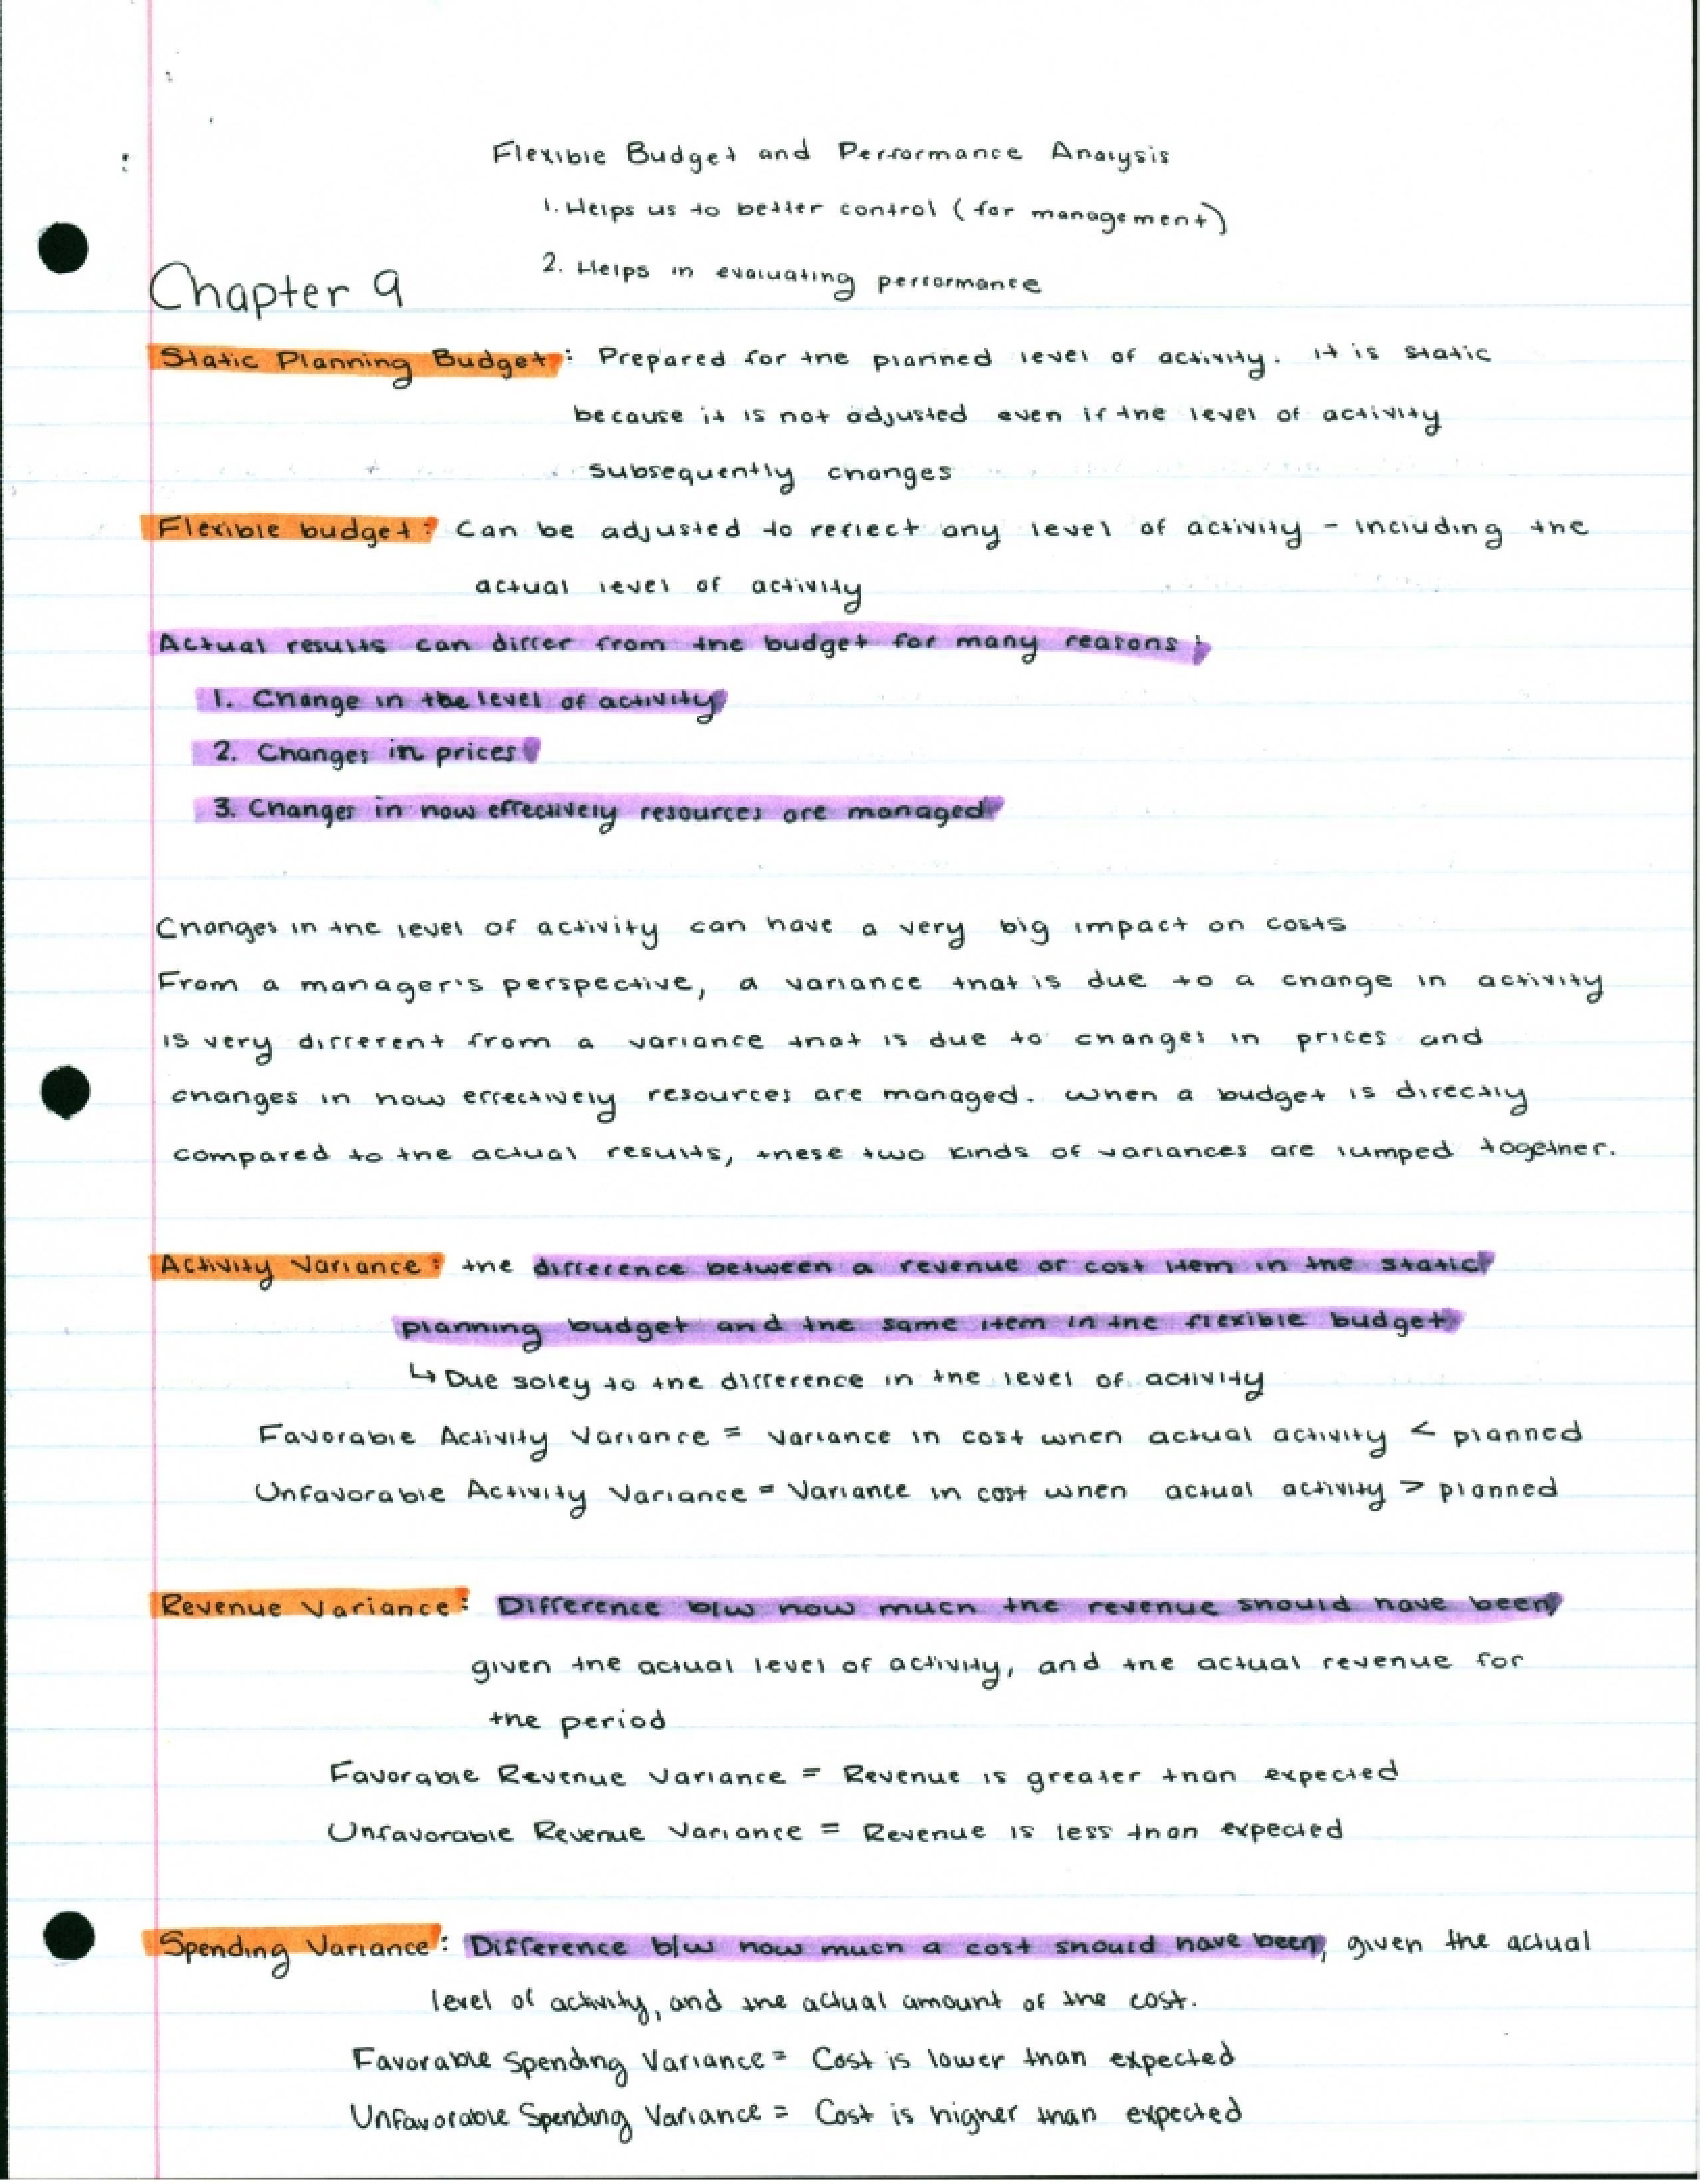 Flexible Budget and Performance Analysis
1. Helps us to better control (for management)
2. Helps in evaluating performance
Chapter 9
Static Planning Budget: Prepared for the planned level of activity. It is static
because it is not adjusted even if the level of activity
subsequently changes
Flexible budget: Can be adjusted to reflect any level of activity - including the
actual level of activity
Actual results can differ from the budget for many reasons:
1. Change in the level of activity
2. Changes in prices
3. Changes in how effectively resources are managed
Changes in the level of activity can have a very big impact on costs
From a manager's perspective, a variance that is due to a change in activity
is very different from a variance that is due to changes in prices and
changes in how effectively resources are managed. When a budget is directly
compared to the actual results, these two kinds of variances are lumped together.
Activity Variance: the difference between a revenue or cost item in the static
planning budget and the same item in the flexible budget
↳ Due soley to the difference in the level of activity
Favorable Activity Variance = Variance in cost when actual activity < planned
Unfavorable Activity Variance = Variance in cost when actual activity > planned
Revenue Variance: Difference b/w how much the revenue should have been,
given the actual level of activity, and the actual revenue for
the period
Favorable Revenue Variance = Revenue is greater than expected
Unfavorable Revenue Variance = Revenue is less than expected
Spending Variance: Difference b/w how much a cost should have been, given the actual
level of activity, and the actual amount of the cost.
Favorable Spending Variance = Cost is lower than expected
Unfavorable Spending Variance = Cost is higher than expected